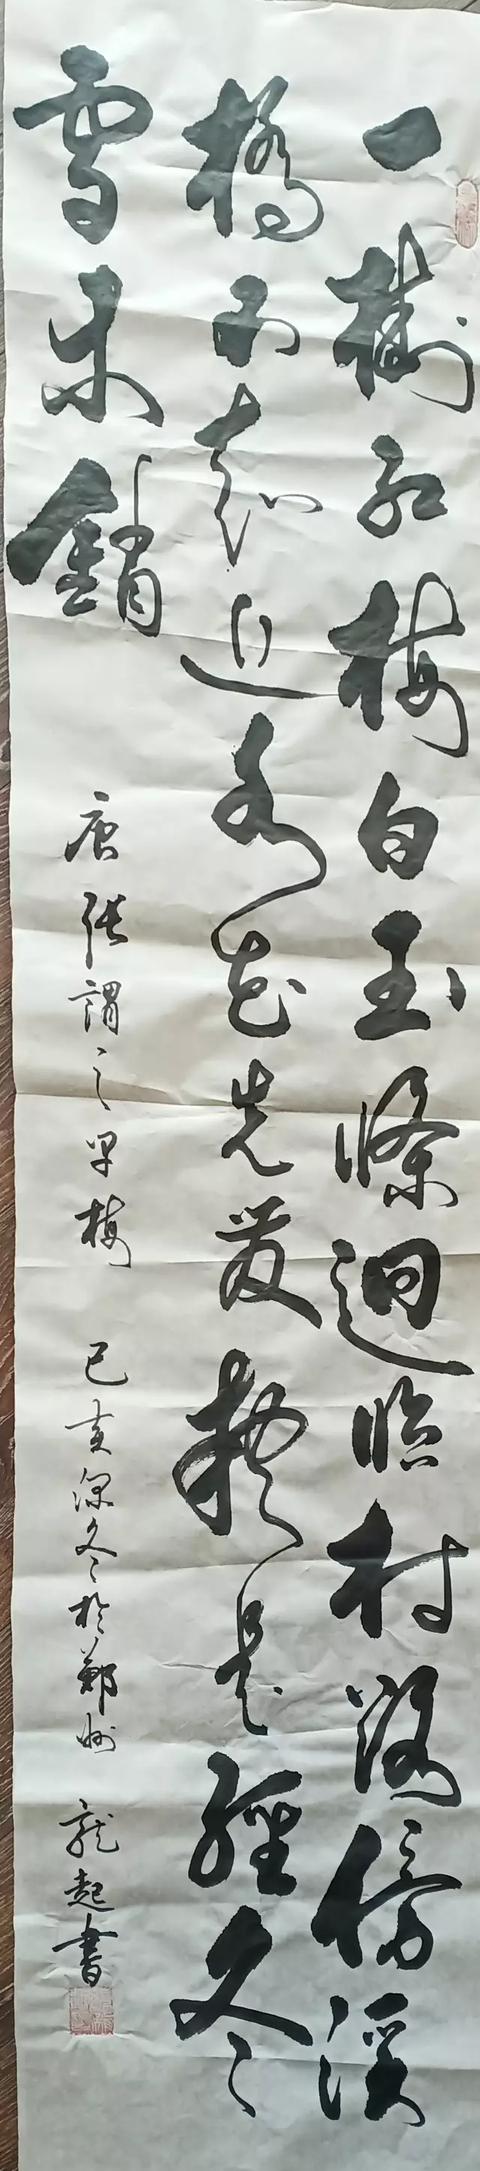 一樹紅梅白玉條逈臨村路傍溪
橋不知近水花先發疑是經冬
雪未銷
唐張謂之早梅 己亥深冬於鄭州 龍起書